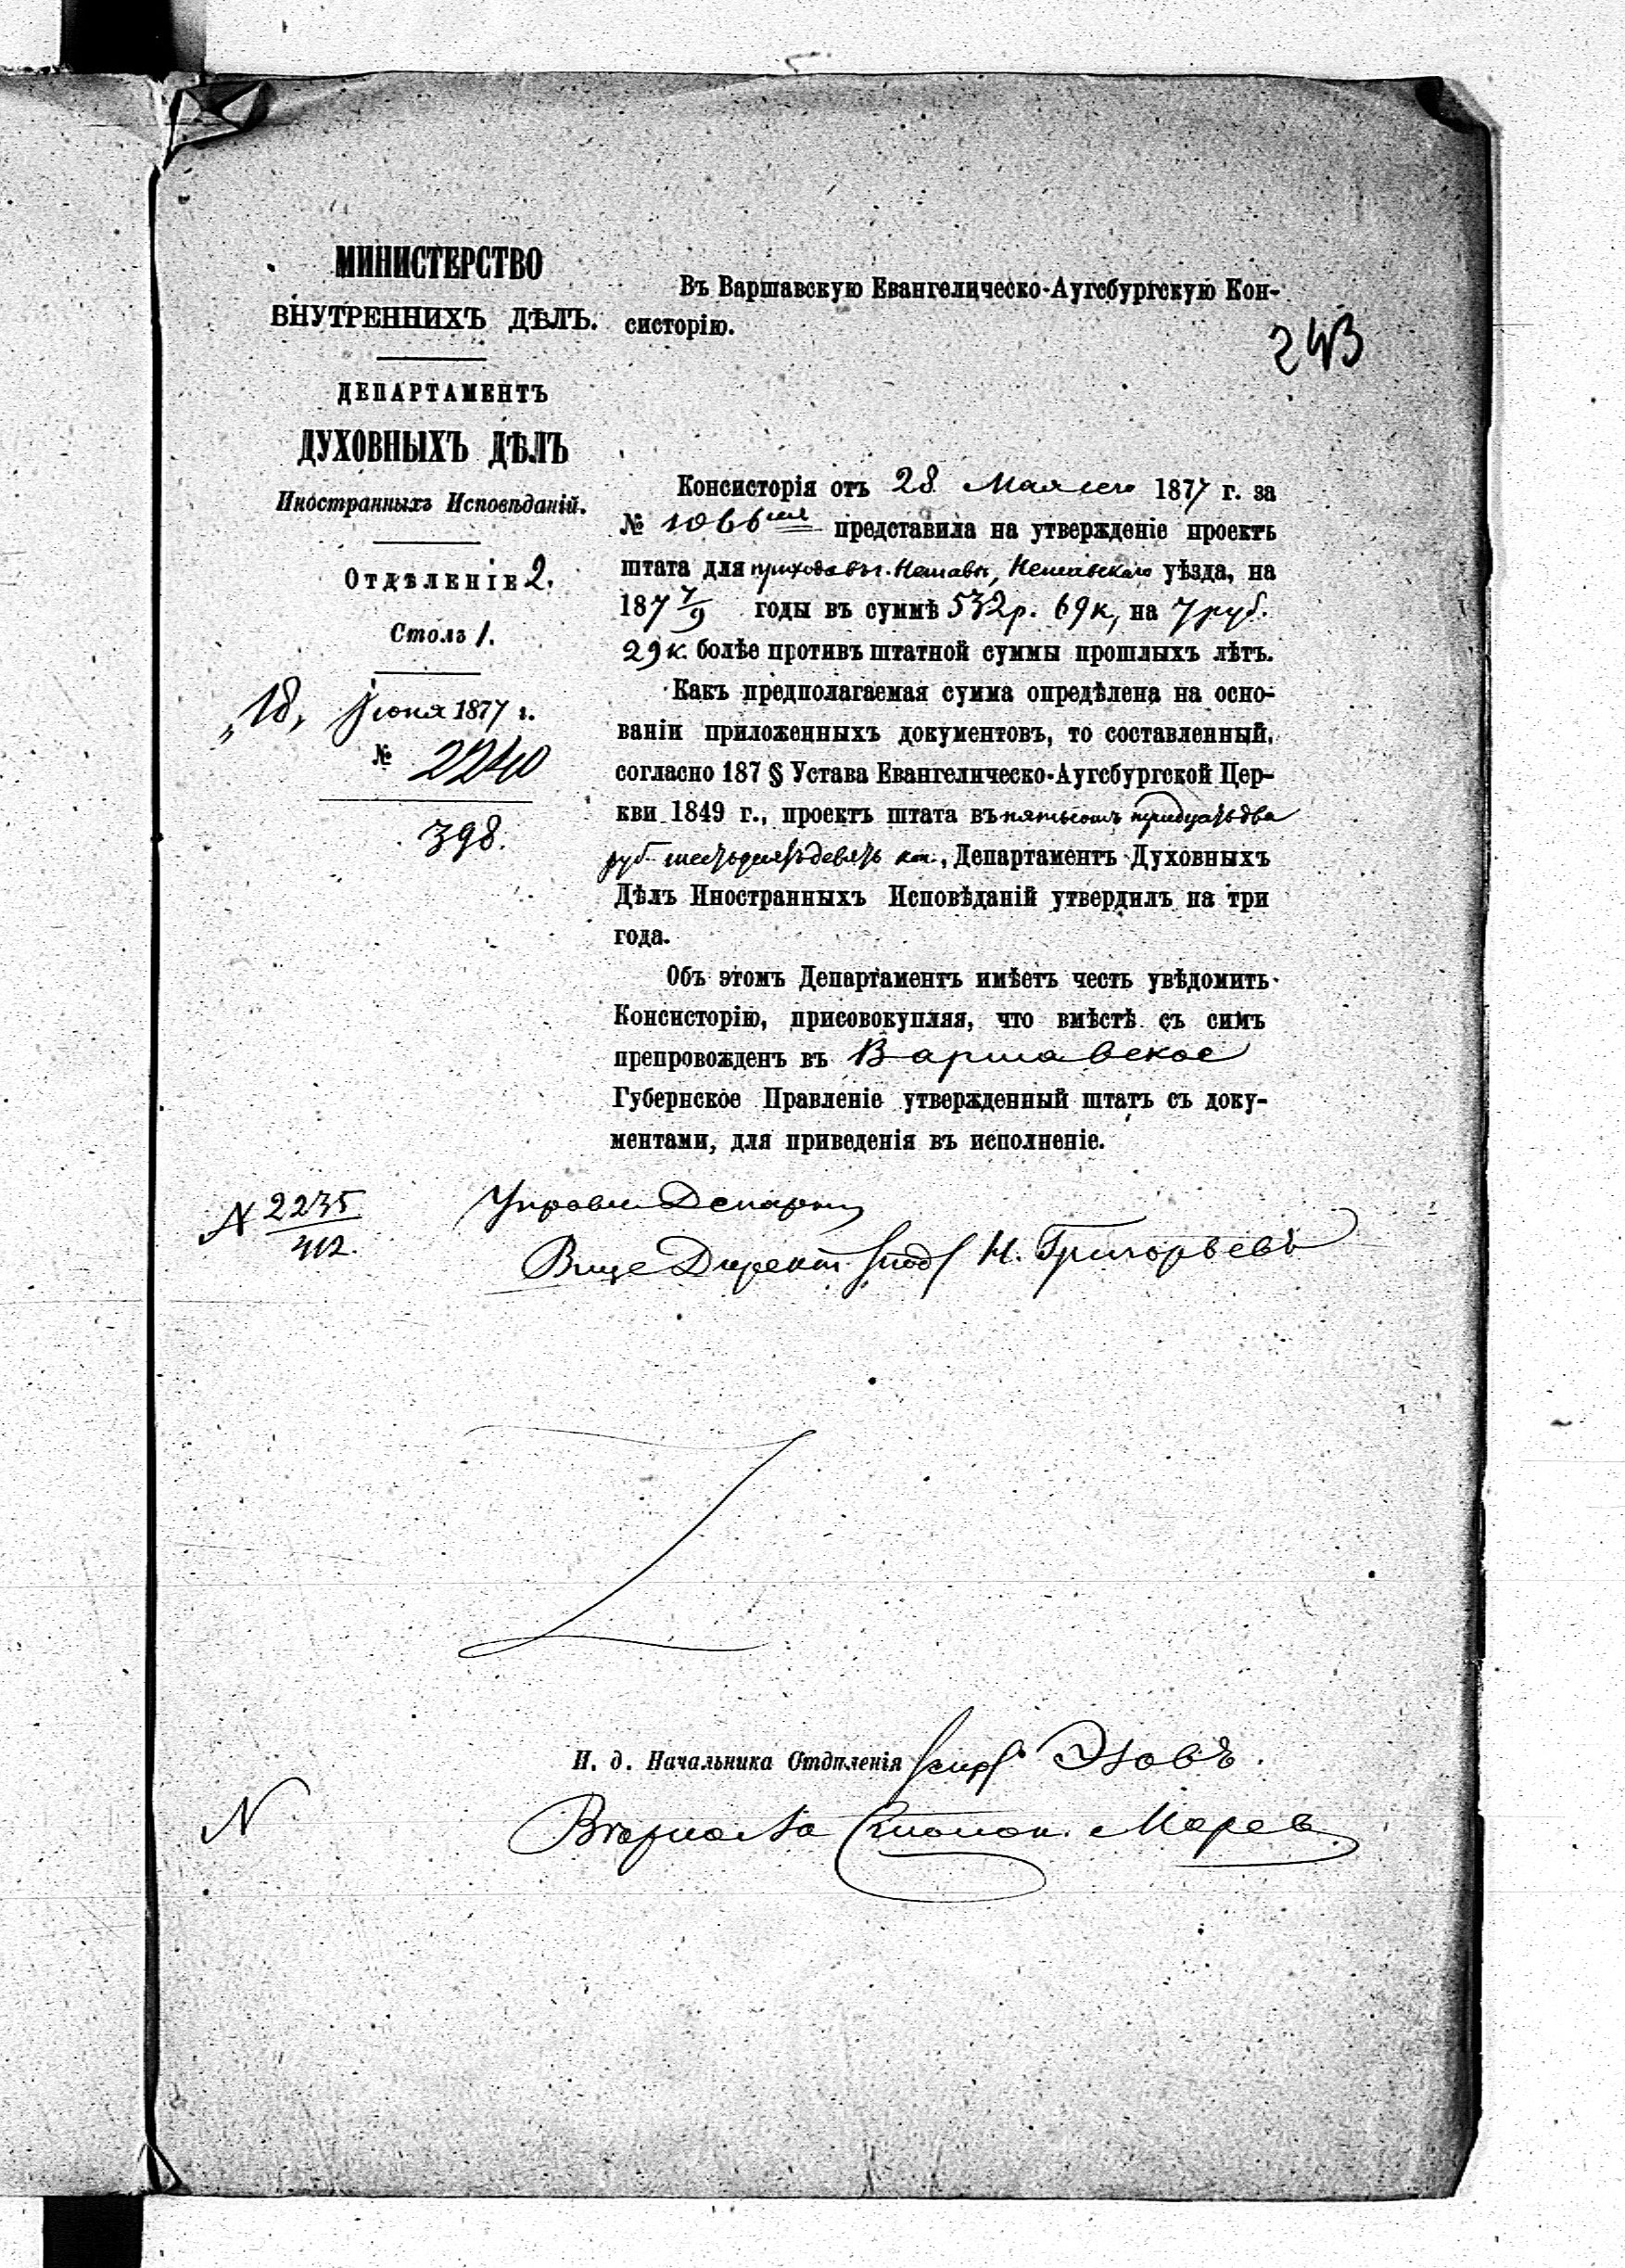 МИНИСТЕРСТВО
ВНУТРЕННИХЪ ДѢЛЪ.
ДЕПАРТАМЕНТЪ
ДУХОВНЫХЪ ДѢЛЪ
Иностранныхъ Исповѣданій.
ОТДѢЛЕНІЕ 2.
Столъ 1.
„18„ Іюня 1877 г.
№ 2240
398.
Въ Варшавскую Евангелическо-Аугсбургскую Кон-
систорію.
243
Консисторія отъ 28 Мая сего 1877 г. за
№ 1066 представила на утвержденіе проектъ
штата для прихода въ г. Нешавѣ, Нешавскаго уѣзда, на
187 7/9 годы въ суммѣ 532 р. 69 к, на 7 руб.
29 к. болѣе противъ штатной суммы прошлыхъ лѣтъ.
Какъ предполагаемая сумма опредѣлена на осно-
ваніи приложенныхъ документовъ, то составленный,
согласно 187 § Устава Евангелическо-Аугсбургской Цер-
кви 1849 г., проектъ штата въ пятьсотъ тридцать два
руб. шестьдесятъ девять коп., Департаментъ Духовныхъ
Дѣлъ Иностранныхъ Исповѣданій утвердилъ на три
года.
Объ этомъ Департаментъ имѣетъ честь увѣдомить
Консисторію, присовокупляя, что вмѣстѣ съ симъ
препровожденъ въ Варшавское
Губернское Правленіе утвержденный штатъ съ доку-
ментами, для приведенія въ исполненіе.
N 2235
412.
Управл Департ
Вице Директ. /под/ Н. Григорьевъ
И. д. Начальника Отдѣленія /скрѣ/ Эзовъ.
N
Вѣрно